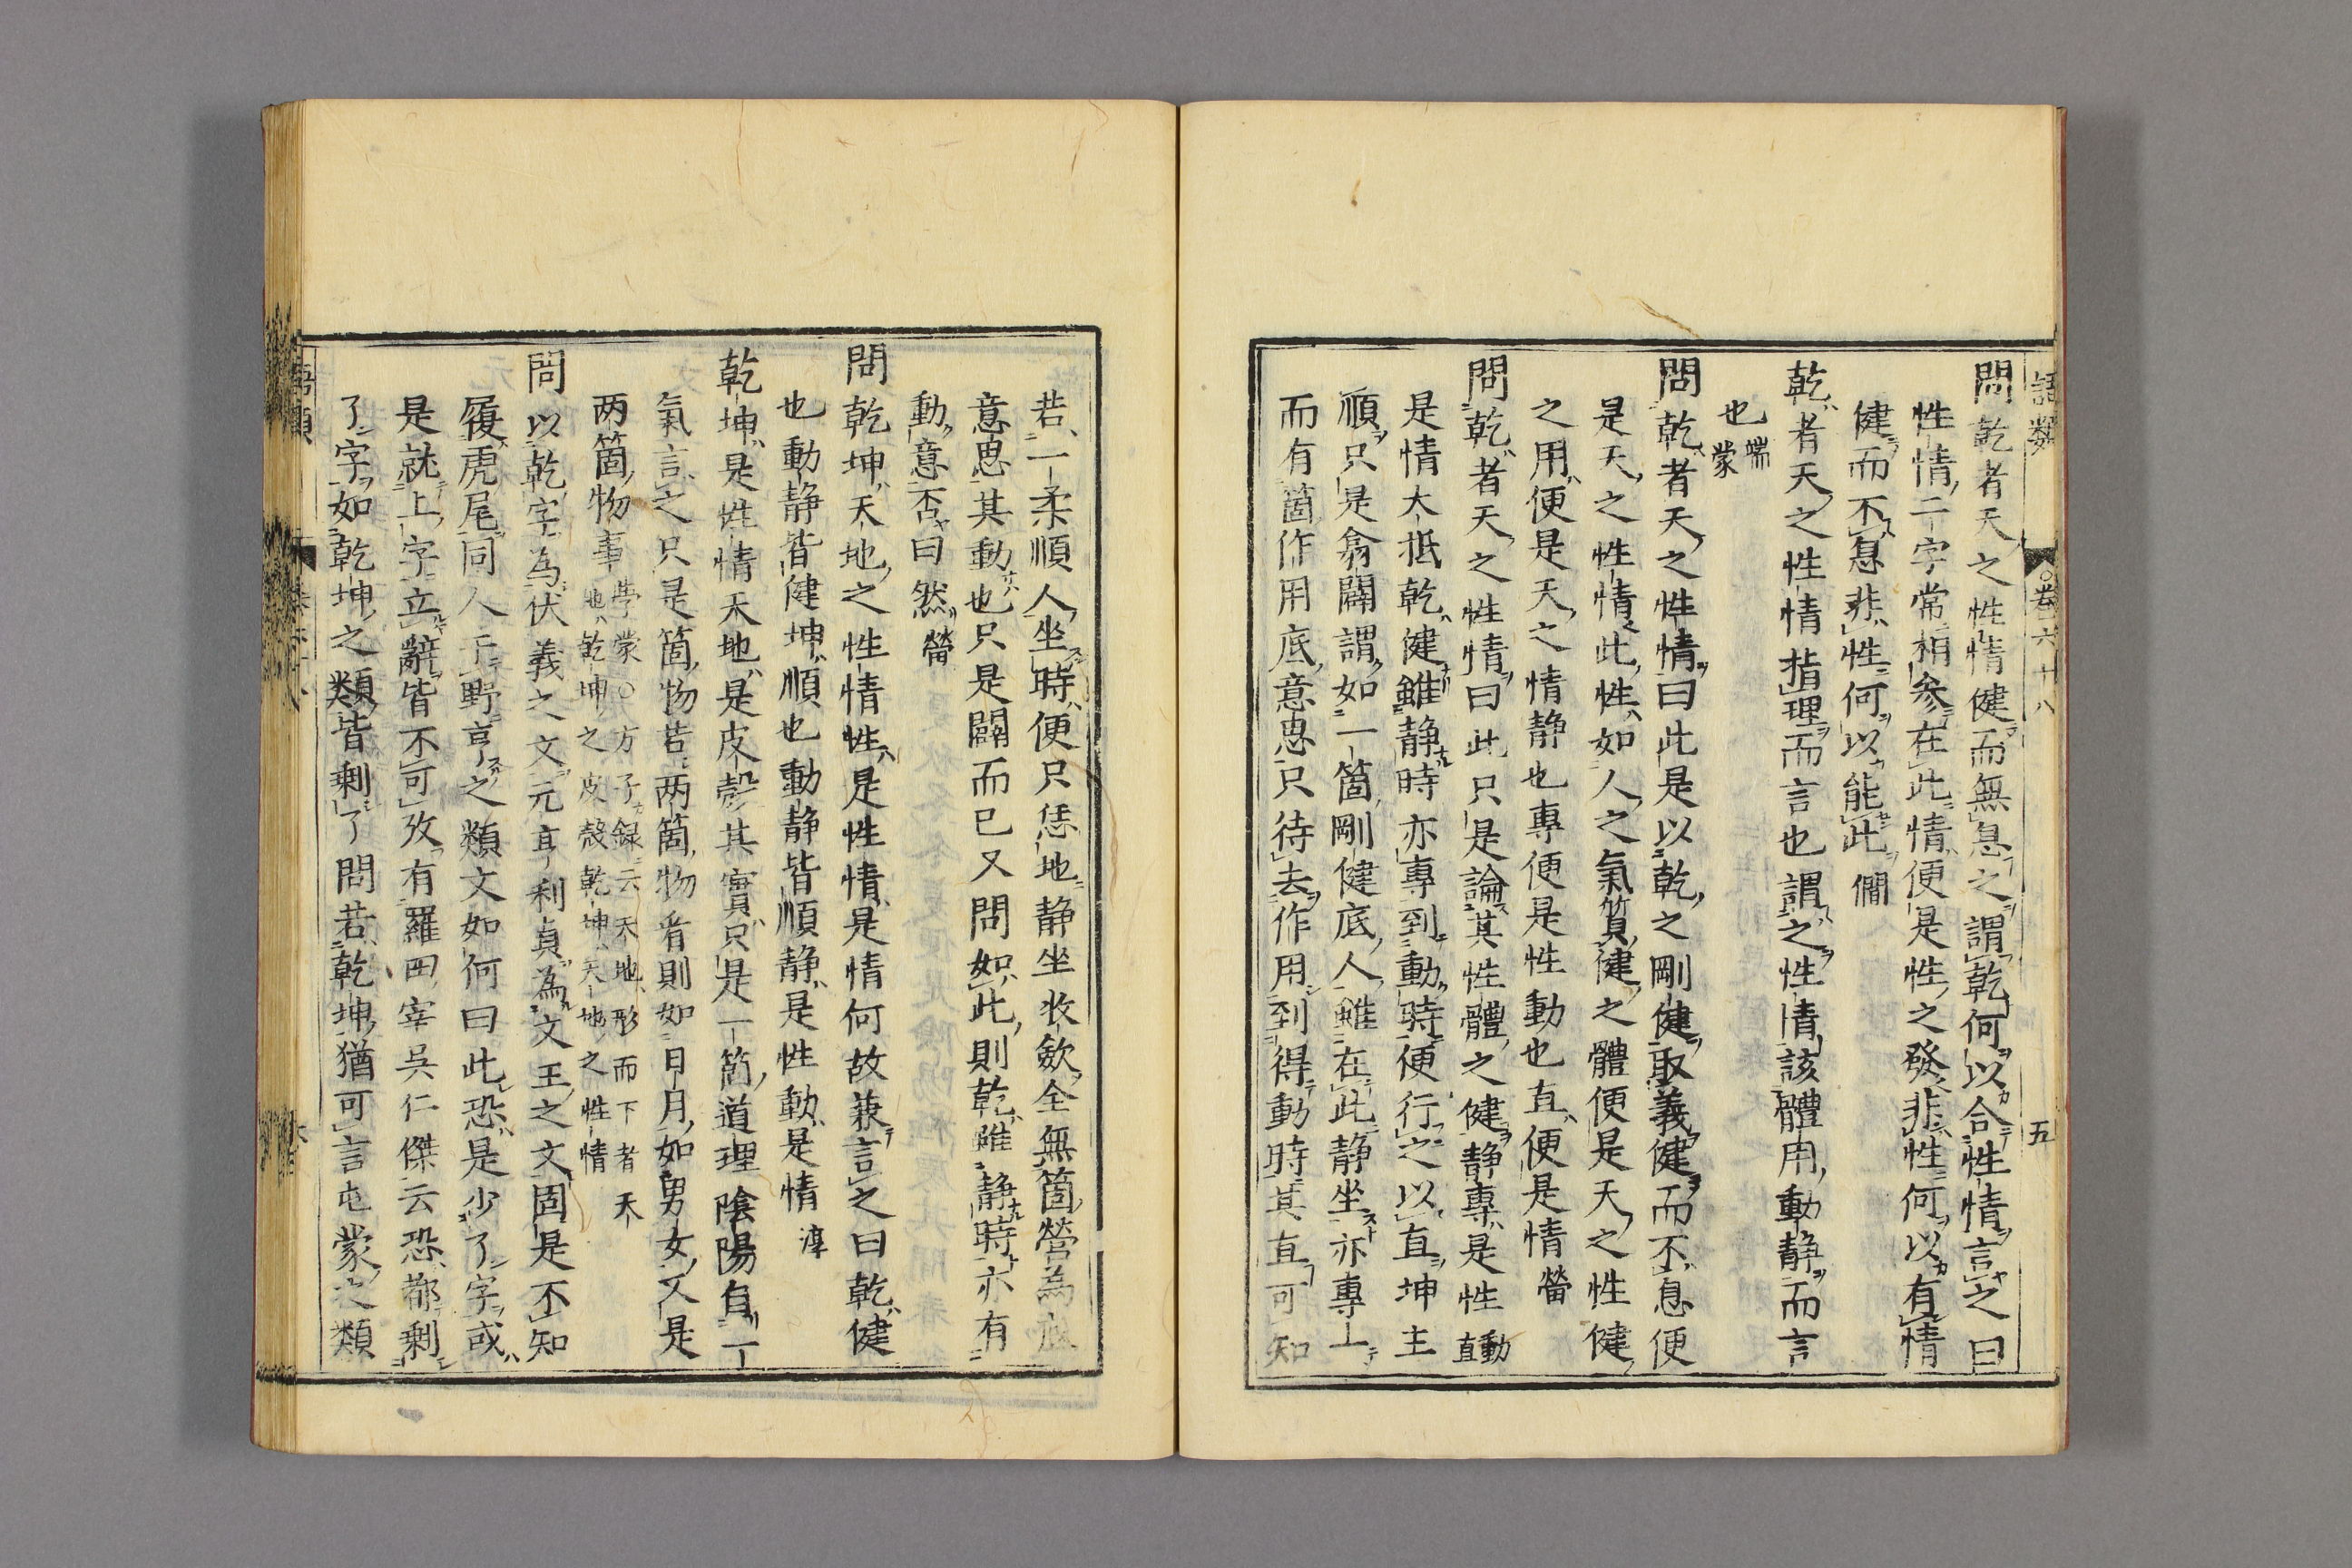 語類 ○卷六十八 五
問乾者天之性情健而無息之謂乾何以合性情言之曰
性情二字常相參在此情便是性之發非性何以有情
健而不息非性何以能此 僩
乾者天之性情指理而言也謂之性情該體用動静而言
也 端蒙
問乾者天之性情曰此是以乾之剛健取義健而不息便
是天之性情此性如人之氣質健之體便是天之性健
之用便是天之情静也專便是性動也直便是情 㽦
問乾者天之性情曰此只是論其性體之健静專是性動直
是情大抵乾健雖静時亦專到動時便行之以直坤主
順只是翕闢謂如一箇剛健底人雖在此静坐亦專一
而有箇作用底意思只待去作用到得動時其直可知
若一柔順人坐時便只恁地静坐收斂全無箇營為底
意思其動也只是闢而已又問如此則乾雖静時亦有
動意否曰然 㽦
問乾坤天地之性情性是性情是情何故兼言之曰乾健
也動静皆健坤順也動静皆順静是性動是情 淳
乾坤是性情天地是皮殻其實只是一箇道理陰陽自一
氣言之只是箇物若两箇物看則如日月如男女又是
两箇物事 學蒙○方子録云天地形而下者天
地乾坤之皮殻乾坤天地之性情
問以乾字為伏羲之文元亨利貞為文王之文固是不知
履虎尾同人于野亨之類文如何曰此恐是少了字或
是就上字立辭皆不可攷有羅田宰吳仁傑云恐都剩
了字如乾坤之類皆剩了問若乾坤猶可言屯蒙之類